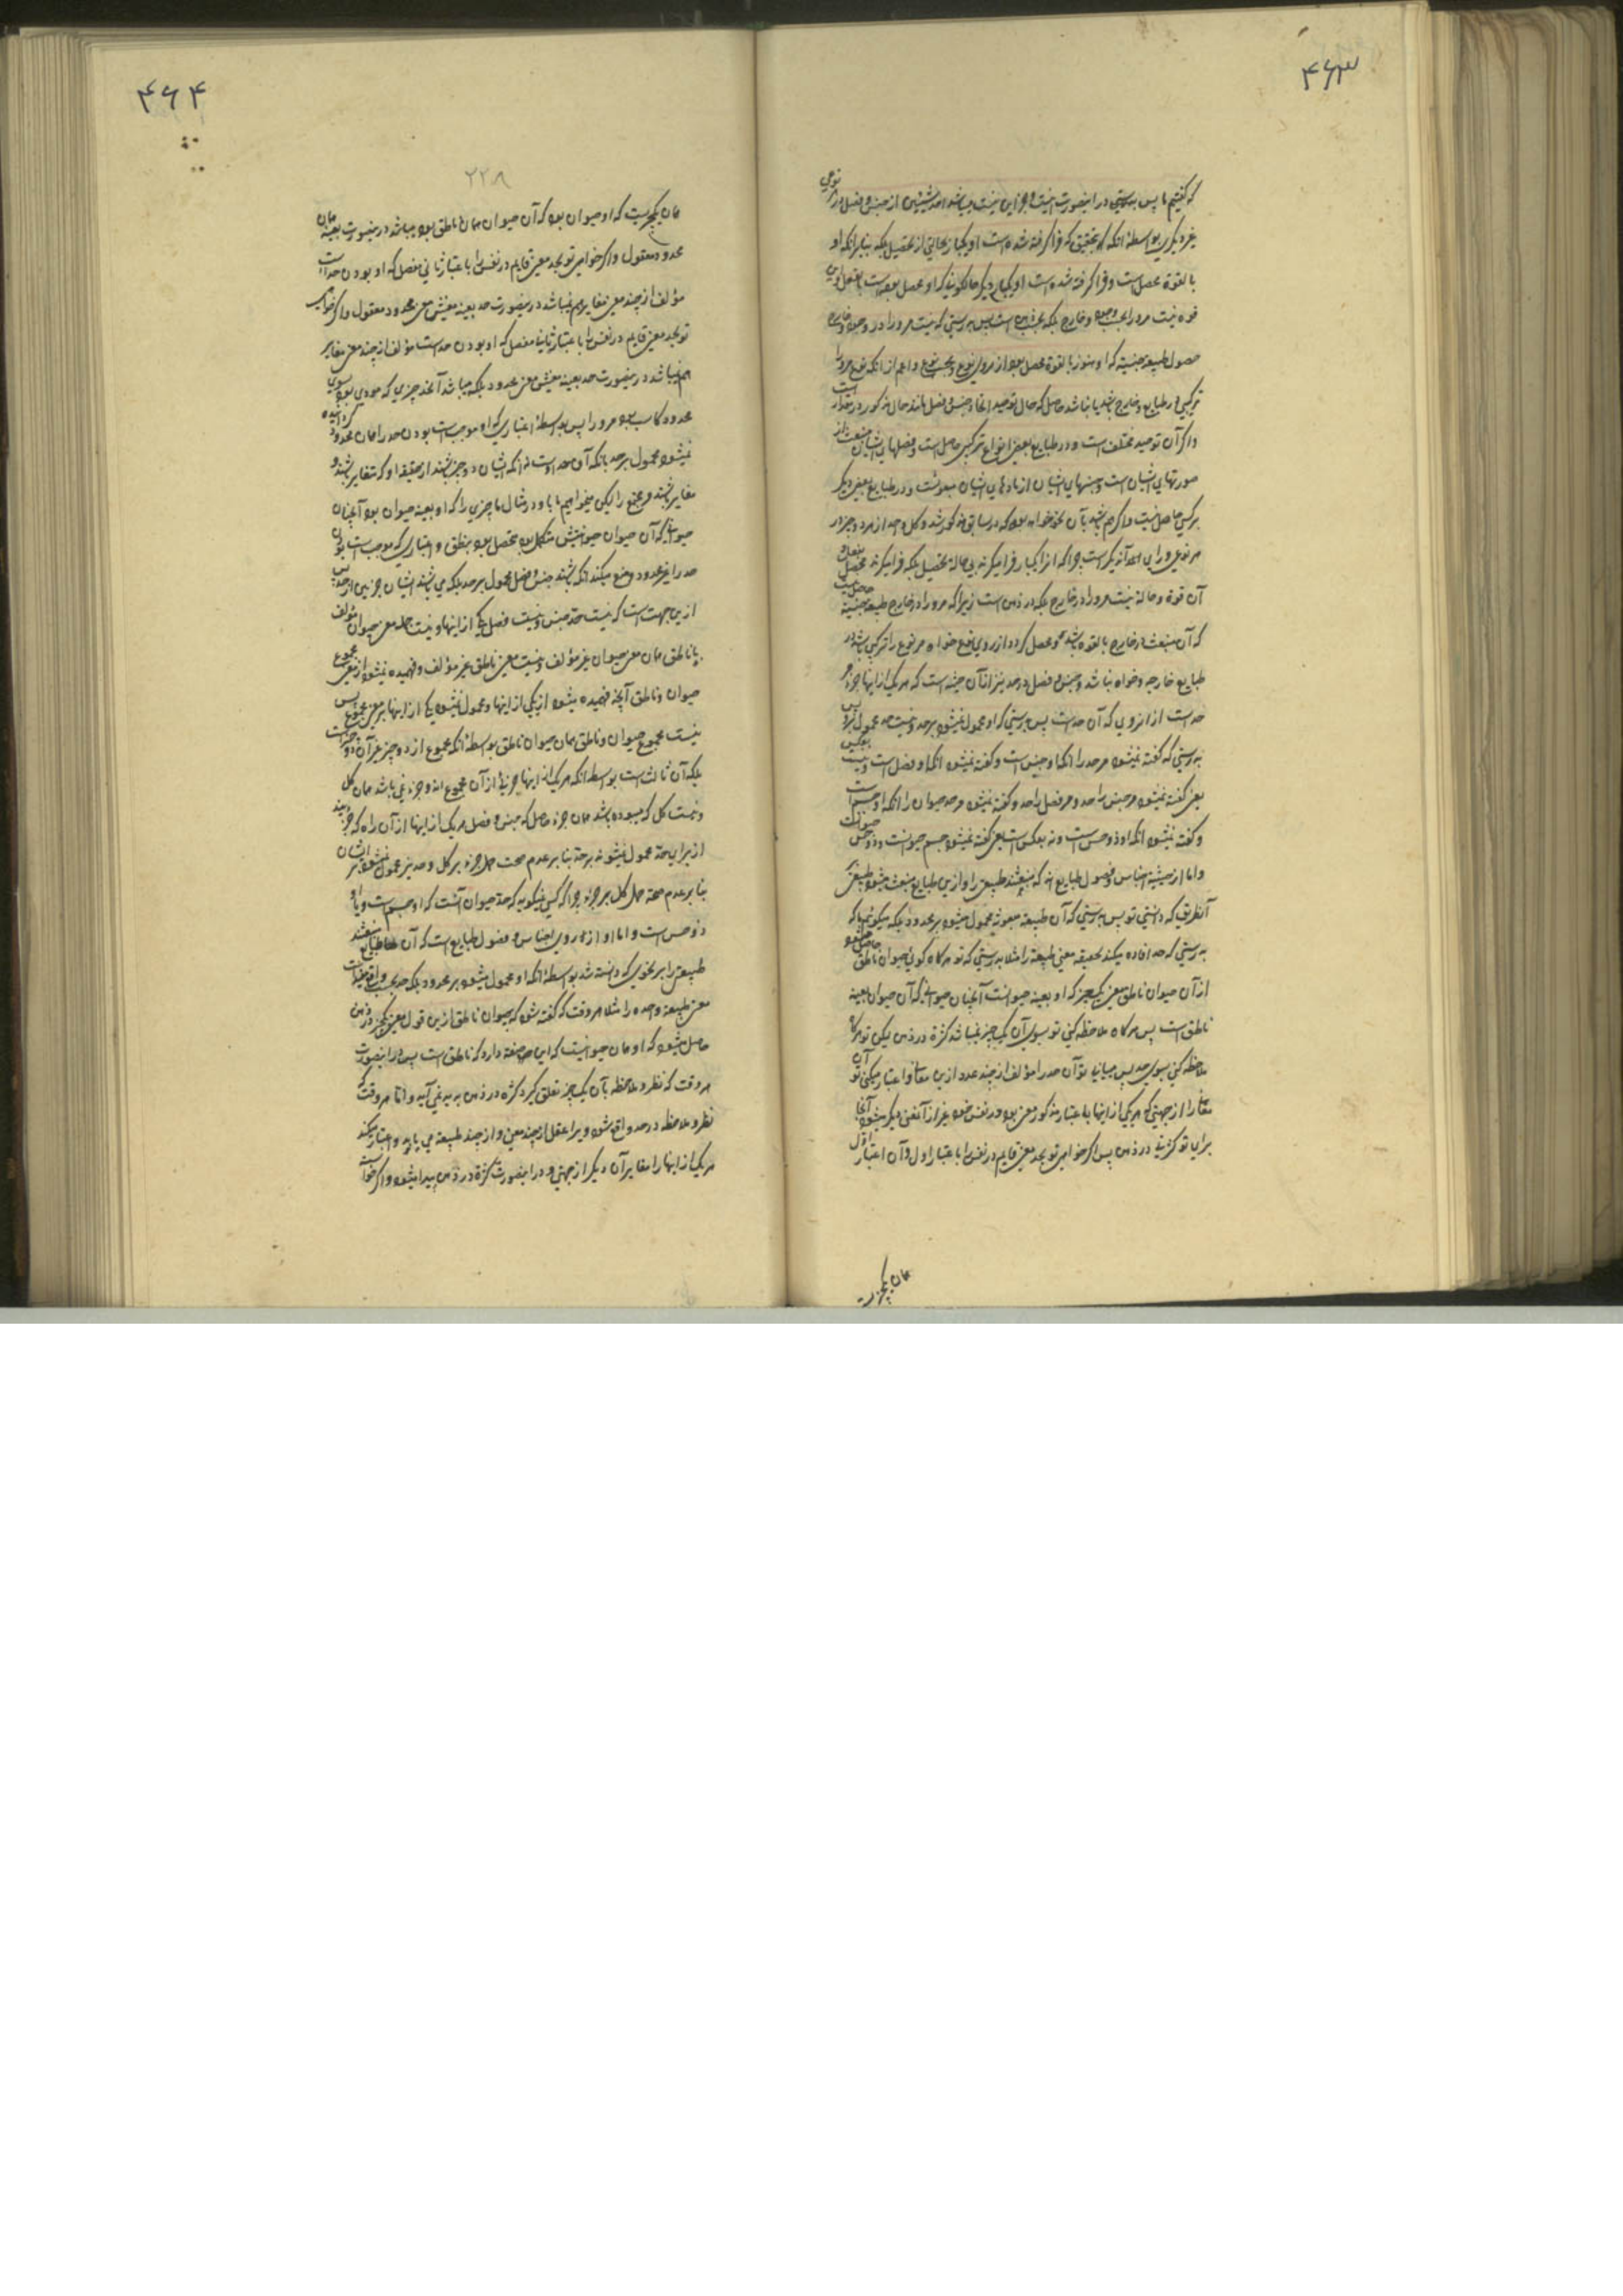 ۴۶۳
که گفتیم ما پس بدرستی در اینصورت نیست و جز این نیست میباشد احد شیئین از جنس و فصل در نوعی
غیر دیگری بواسطهٔ آنکه بتحقیق که فرا گرفته شده است او یکبار بحالتی از تحصیل بلکه بنا بر آنکه او
بالقوة محصل است و فرا گرفته شده است او یکبار دیگر حالکونیکه او محصل بوده است بالفعل و این
قوه نیست مر و را بحسب وجود و خارج بلکه بحسب ذهن است پس بدرستی که نیست مر و را در وجود و خارج
حصول طبیعة جنسیة که او هنوز بالقوة محصل بوده از روی نوع و بحسب نوع و اعم از آنکه نوع مر و را
ترکیبی در طبایع و خارج باشد یا نباشد حاصل که حال توحید اتحاد جنس و فصل مانند حال مذکور در مقدار است
و اگر آن توحید مختلف است و در طبایع بعضی انواع ترکیبی حاصل است و فصلهای ایشان منبعث از
صورتهای ایشان است و جنسهای ایشان از مادهای ایشان مبعوثست و در طبایع بعضی دیگر
ترکیبی حاصل نیست و اگر هم باشد بآن نحو خواهد بود که در سابق مذکور شد و کل واحد از هر دو جزء در
هر نوعی ورای احد آن دیگر است چرا که آنرا یکبار فرا میگیرند بی حاله تحصیل بلکه فرا میگیرند محصل بفعل و
آن قوة و حاله نیست مر و را در خارج بلکه در ذهن است زیرا که مر و را در خارج طبیعة جنسیة حاصل نیست
که آن منبعث در خارج بالقوه باشد و محصل گردد از روی نوع خواه مر نوع را ترکیبی باشد در
طبایع خارجیه و خواه نباشد و جنس و فصل در حد نیز از آن حیثه است که هر یک از اینها جزء
حد است از انروی که آن حدست پس بدرستی که او محمول نمیشود بر حد و نیست حد محمول برو پس
بدرستی که گفته نمیشود مر حد را انکه او جنس است و گفته نمیشود انکه او فصل است و نیست بعکس
یعنی گفته نمیشود مر جنس را حد و مر فصل را حد و گفته نمیشود مر حد حیوان را انکه او جسم است
و گفته نمیشود انکه او ذو حس است و نه بعکس است یعنی گفته نمیشود جسم حیوانست و ذو حس حیوانست
و اما از حیثیة اجناس و فصول طبایع اند که منبعثند طبیعتی را و ازین طبایع منبعث میشود طبیعتی
آنطریق که دانستی تو پس بدرستی که آن طبیعة مبعوثه محمول میشود بر محدود بلکه میگوئیم ما که
بدرستی که حد افاده میکند بحقیقه معنی طبیعة را مثلا بدرستی که تو هر گاه گوئی حیوان ناطق حاصل میشود
از آن حیوان ناطق معنی یکچیز که او بعینه حیوانست آنچنان حیوانی که آن حیوان بعینه
ناطق است پس هر گاه ملاحظه کنی تو بسوی آن یکچیز نمیباشد کثرة در ذهن لیکن تو هر گاه
ملاحظه کنی بسوی حد پس میابی تو آن حد را مؤلف از چند عدد ازین معانی و اعتبار میکنی تو آن
معانی را از جهتی که هر یکی از اینها باعتبار مذکور معنی بود در نفس خود غیر از آنمعنی دیگر میشود آنجا
برای تو کثرتی در ذهن پس اگر خواهی تو بحد معنی قایم در نفس را باعتبار اول و آن اعتبار اول
همان یکچیزیست
۴۶۴
۲۲۸
همان یکچیزیست که او حیوان بود که آن حیوان همان ناطق بود میباشد درینصورت بعینه همان
محدود معقول و اگر خواهی تو بحد معنی قایم در نفس را باعتبار ثانی مفصل که او بودن حد است
مؤلف از چند معنی مغایر هم نمیباشد درینصورت حد بعینه معنیش معنی محدود معقول و اگر خواهی
تو بحد معنی قایم در نفس را باعتبار ثانیا مفصل که او بودن حد است مؤلف از چند معنی مغایر
هم نمیباشد درینصورت حد بعینه معنیش معنی محدود بلکه میباشد آنحد چیزی که مودی بود بسوی
محدود کاسب بود مر و را پس بواسطهٔ اعتباری که او موجب است بودن حد را همان محدود گردانیده
نمیشود محمول بر حد بانکه آن حد اوست نه انکه ایشان دو جزء باشند از حقیقه او که متغایر باشند و
مغایر باشند مر مجتمع را لیکن میخواهیم ما باو در مثال ما چیزی را که او بعینه حیوان بود آنچنان
حیوانی که آن حیوان حیوانیتش متکمل بود بتحصل بوده بنطق و اعتباری که موجب است بودن
حد را غیر محدود و منع میکند انکه باشند جنس و فصل محمول بر حد بلکه می باشند ایشان جزئین از حد پس
ازین جهت است که نیست حد جنس و نیست فصل یکی از اینها و نیست جمله معنی حیوان مؤلف
با ناطق همان معنی حیوان غیر مؤلف و نیست معنی ناطق غیر مؤلف و فهمیده نمیشود از معنی مجموع
حیوان و ناطق آنچه فهمیده میشود از یکی از اینها و محمول نمیشود یکی از اینها بر معنی مجموع پس
نیست مجموع حیوان و ناطق همان حیوان ناطق بواسطهٔ انکه مجموع از دو چیز غیر آن دو چیز است
بلکه آن ثالث است بواسطهٔ انکه هر یک از اینها جزئیهٔ از آن مجموع اند و جزء نمی باشد همان کل
و نیست کل که میبوده باشد همان جزء حاصل که جنس و فصل هر یک از اینها از آن راه که جزئند
از برای حد محمول نمیشوند بر حد بنا بر عدم صحت حمل جزء بر کل و حد نیز محمول نمیشود بر ایشان
بنا بر عدم صحة حمل کل بر جزء چرا که کسی نمیگوید که حد حیوان آنست که او جسم است و یا او
ذو حس است و اما او از روی اجناس و فصول طبایع است که آن طبایع منبعثند
طبیعتی را بر نحوی که دانسته شد بواسطهٔ انکه او محمول میشود بر محدود بلکه حد بحسب واقع مفید است
معنی طبیعة واحده را مثلا هر وقت که گفته شود که حیوان ناطق ازین قول معنی یکچیز در ذهن
حاصل میشود که او همان حیوانیست که این صفة دارد که ناطق است پس در اینصورت
هر وقت که نظر و ملاحظه بآن یکچیز تعلق گیرد کثرة در ذهن پدید نمی آید و اما هر وقت که
نظر و ملاحظه در حد واقع شود ویرا عقل از چند معنی و از چند طبیعة می یابد و اعتبار میکند
هر یک از اینها را مغایر آن دیگر از جهتی و در اینصورت کثرة در ذهن پیدا میشود و اگر خواست